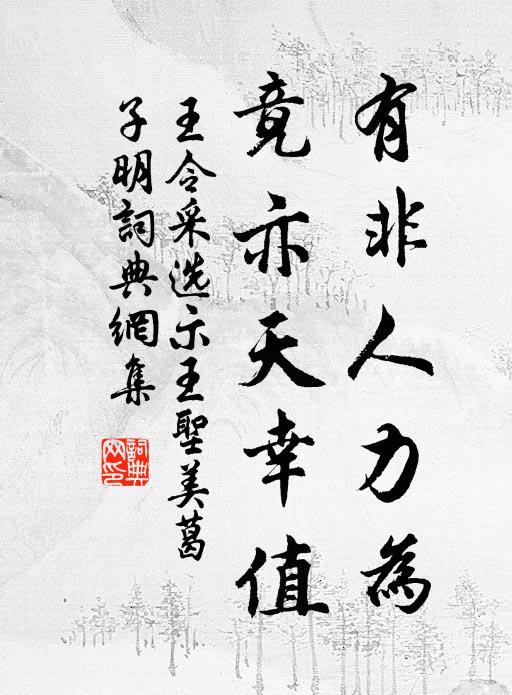 有非人力為
竟亦天幸值
王令采選示王聖美葛
子明詞典網集
詞典網印